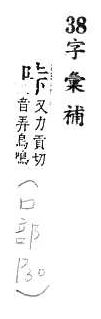 38字彙補
又力貢切
音弄鳥鳴
(口部P30)